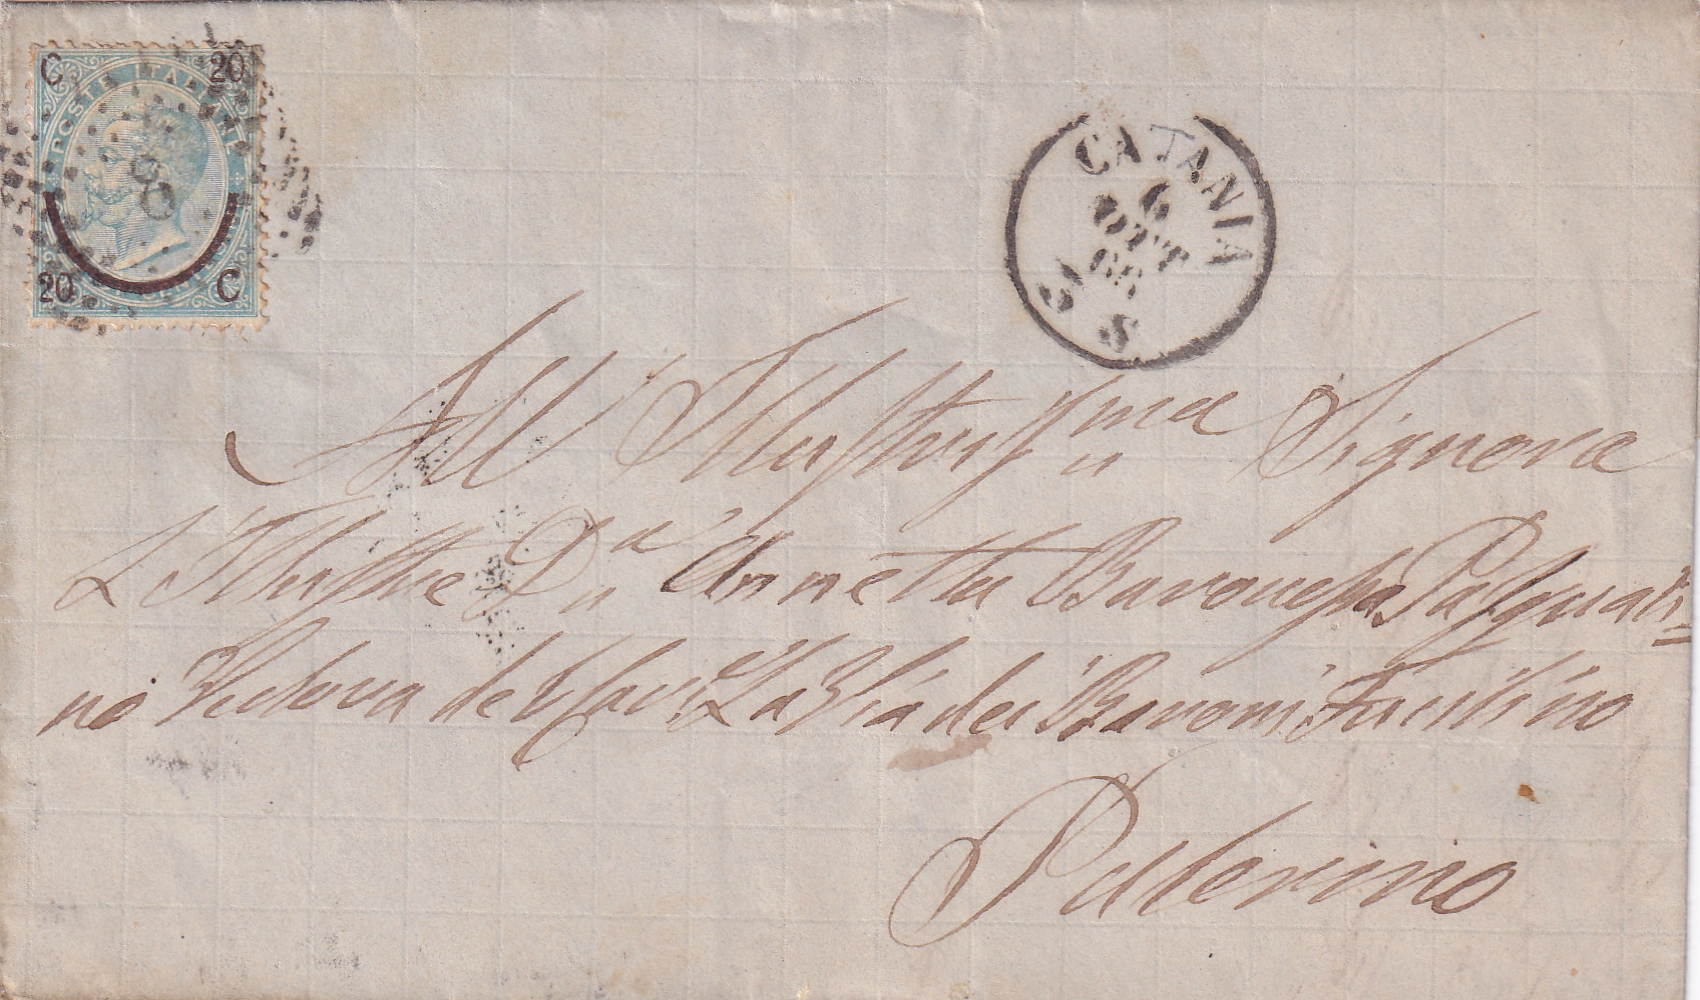 C 20
POSTE ITALIANE
20 C
CATANIA
6
OTT
66
S
All Illustrissma Signora
L'Illustre Da Annetta Baronessa Pasquali=
no Vedova de La Via dei Baroni
Palermo